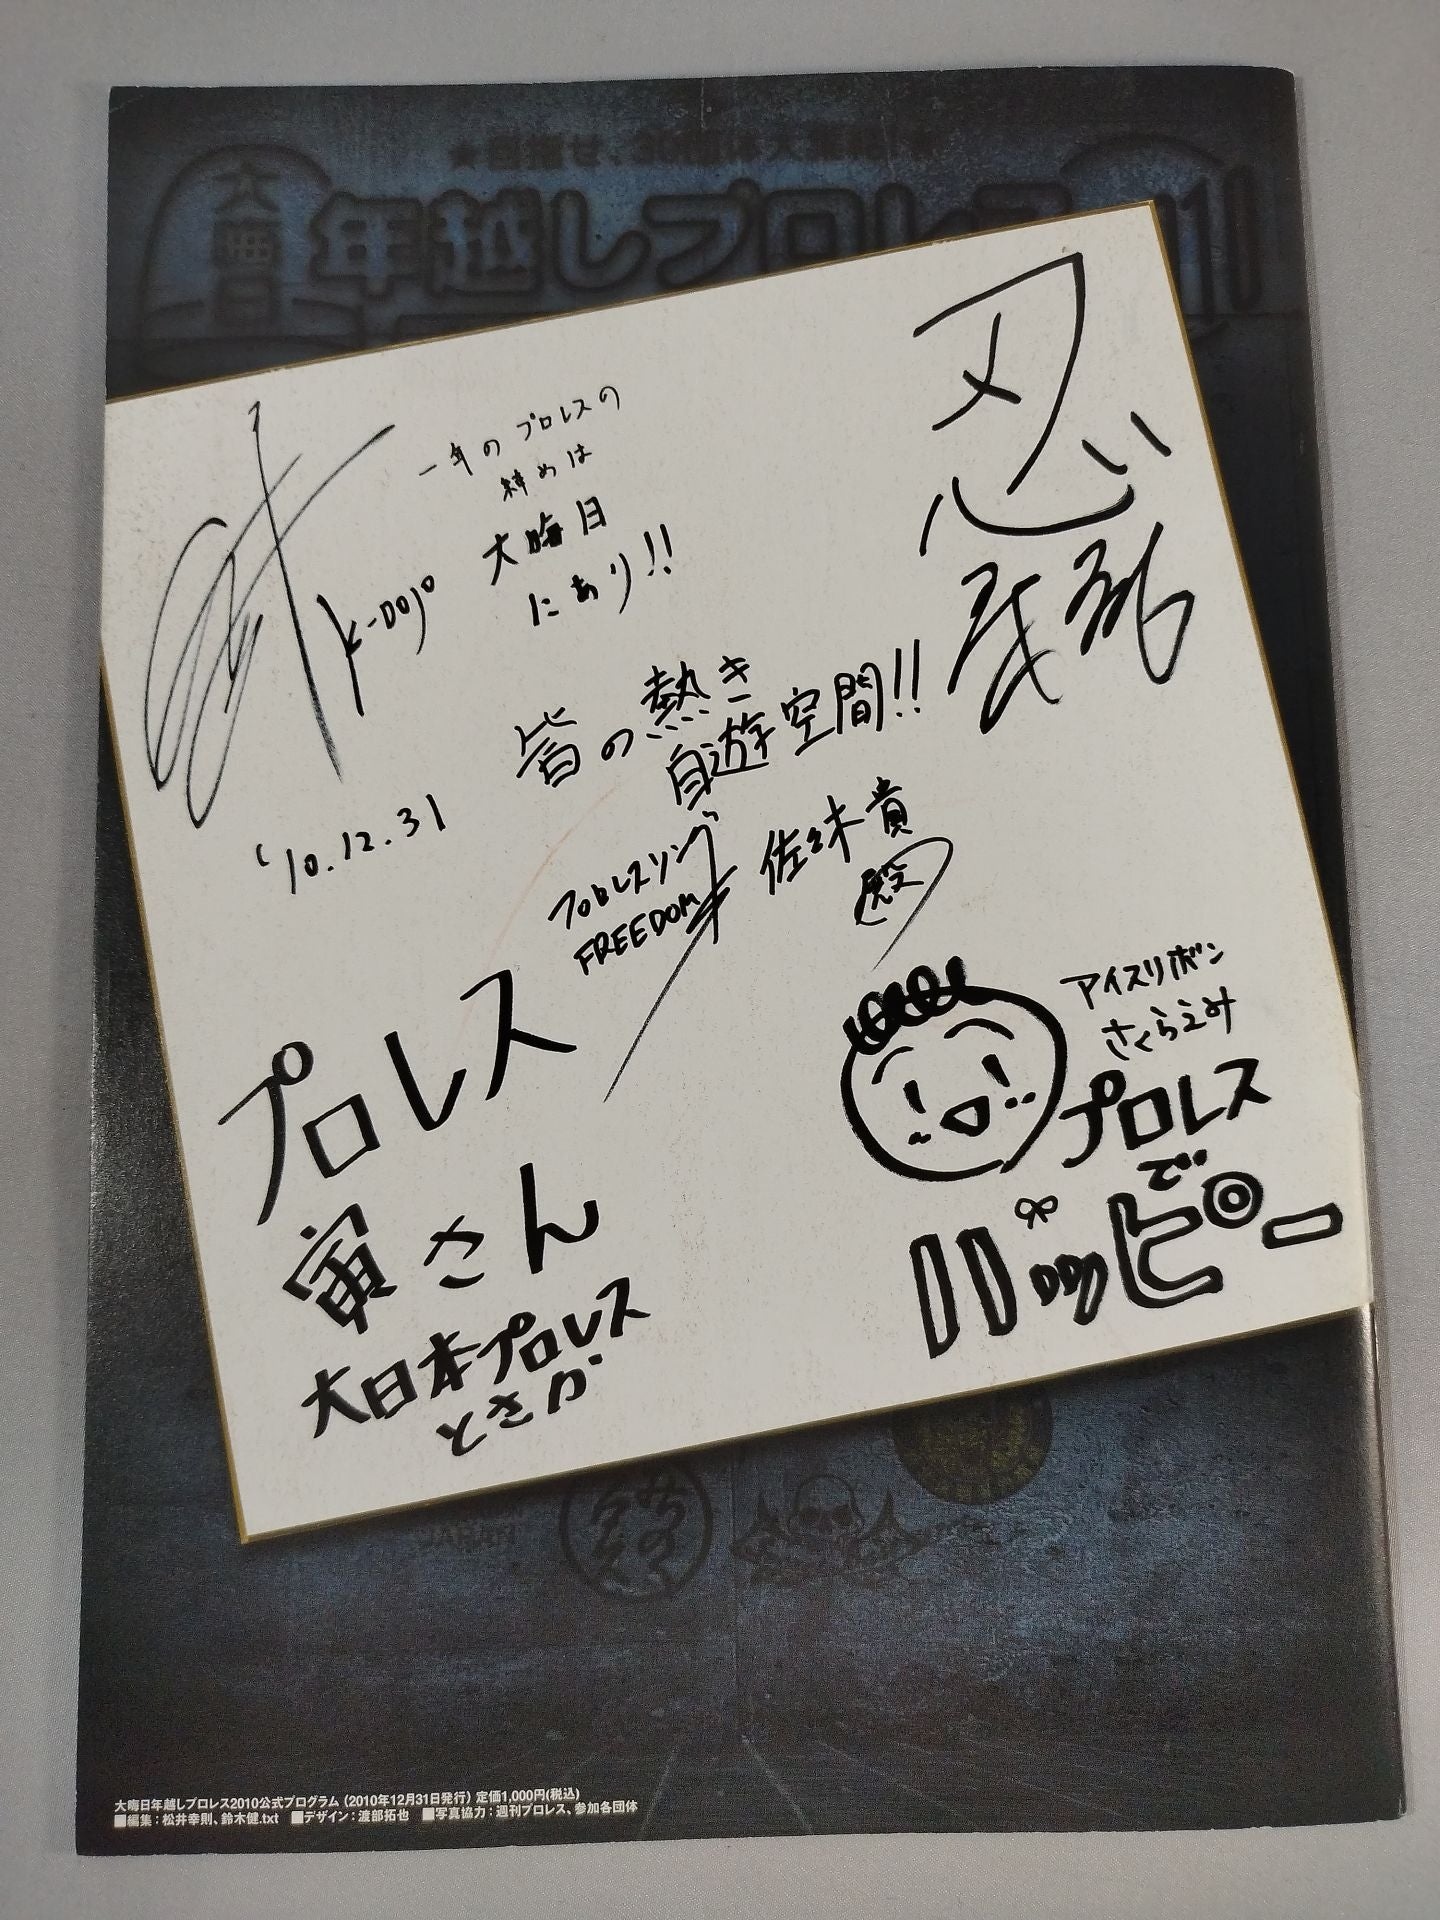 大晦日
年越しプロレス
一年のプロレスの
締めは
大晦日
にあり!!
K-DOJO
'10.12.31
忍
皆の熱き
自遊空間!!
プロレスリング
FREEDOMS
佐々木貴
殿
アイスリボン
さくらえみ
プロレス
で
ハッピー
プロレス
寅さん
大日本プロレス
とさか
大晦日年越しプロレス2010公式プログラム (2010年12月31日発行) 定価1,000円(税込)
■編集:松井幸則、鈴木健.txt ■デザイン:渡部拓也 ■写真協力:週刊プロレス、参加各団体